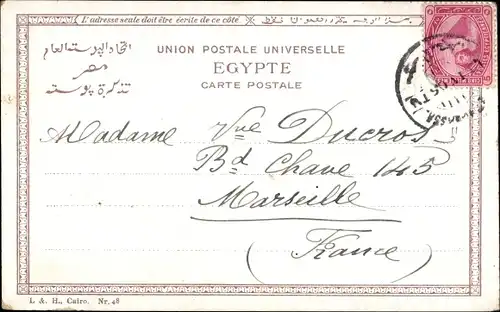 L'adresse seule doit être écrite de ce côté
UNION POSTALE UNIVERSELLE
EGYPTE
CARTE POSTALE
اتحاد البوستة العام
مصر
تذكرة بوسته
Madame Vve Ducros
Bd Chave 145
Marseille
(France)
L. & H., Cairo. Nr. 48